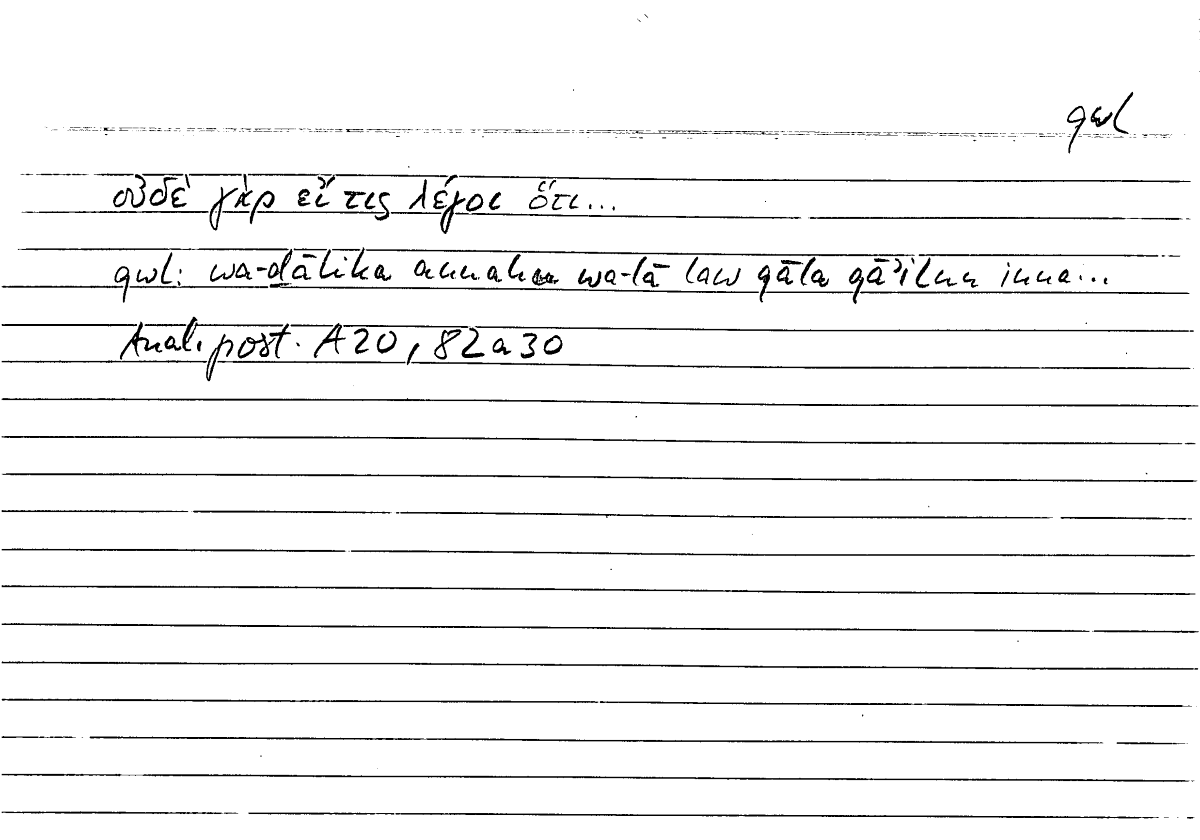 qwl
οὐδὲ γὰρ εἴ τις λέγοι ὅτι...
qwl: wa-ḏālika annahu wa-lā law qāla qāʾilun inna...
Anal. post. A20, 82a30